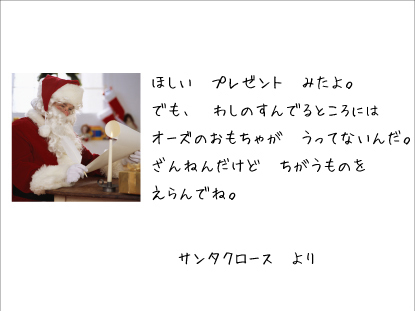 ほしい　プレゼント　みたよ。
でも、　わしのすんでるところには
オーズのおもちゃが　うってないんだ。
ざんねんだけど　ちがうものを
えらんでね。
サンタクロース　より